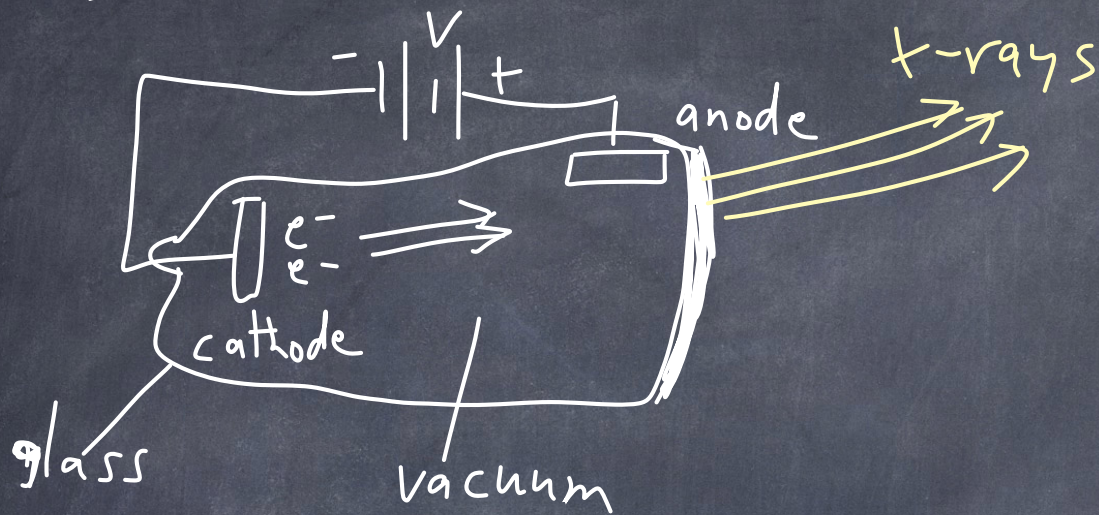 V
- +
x-rays
anode
e-
e-
cathode
glass
vacuum